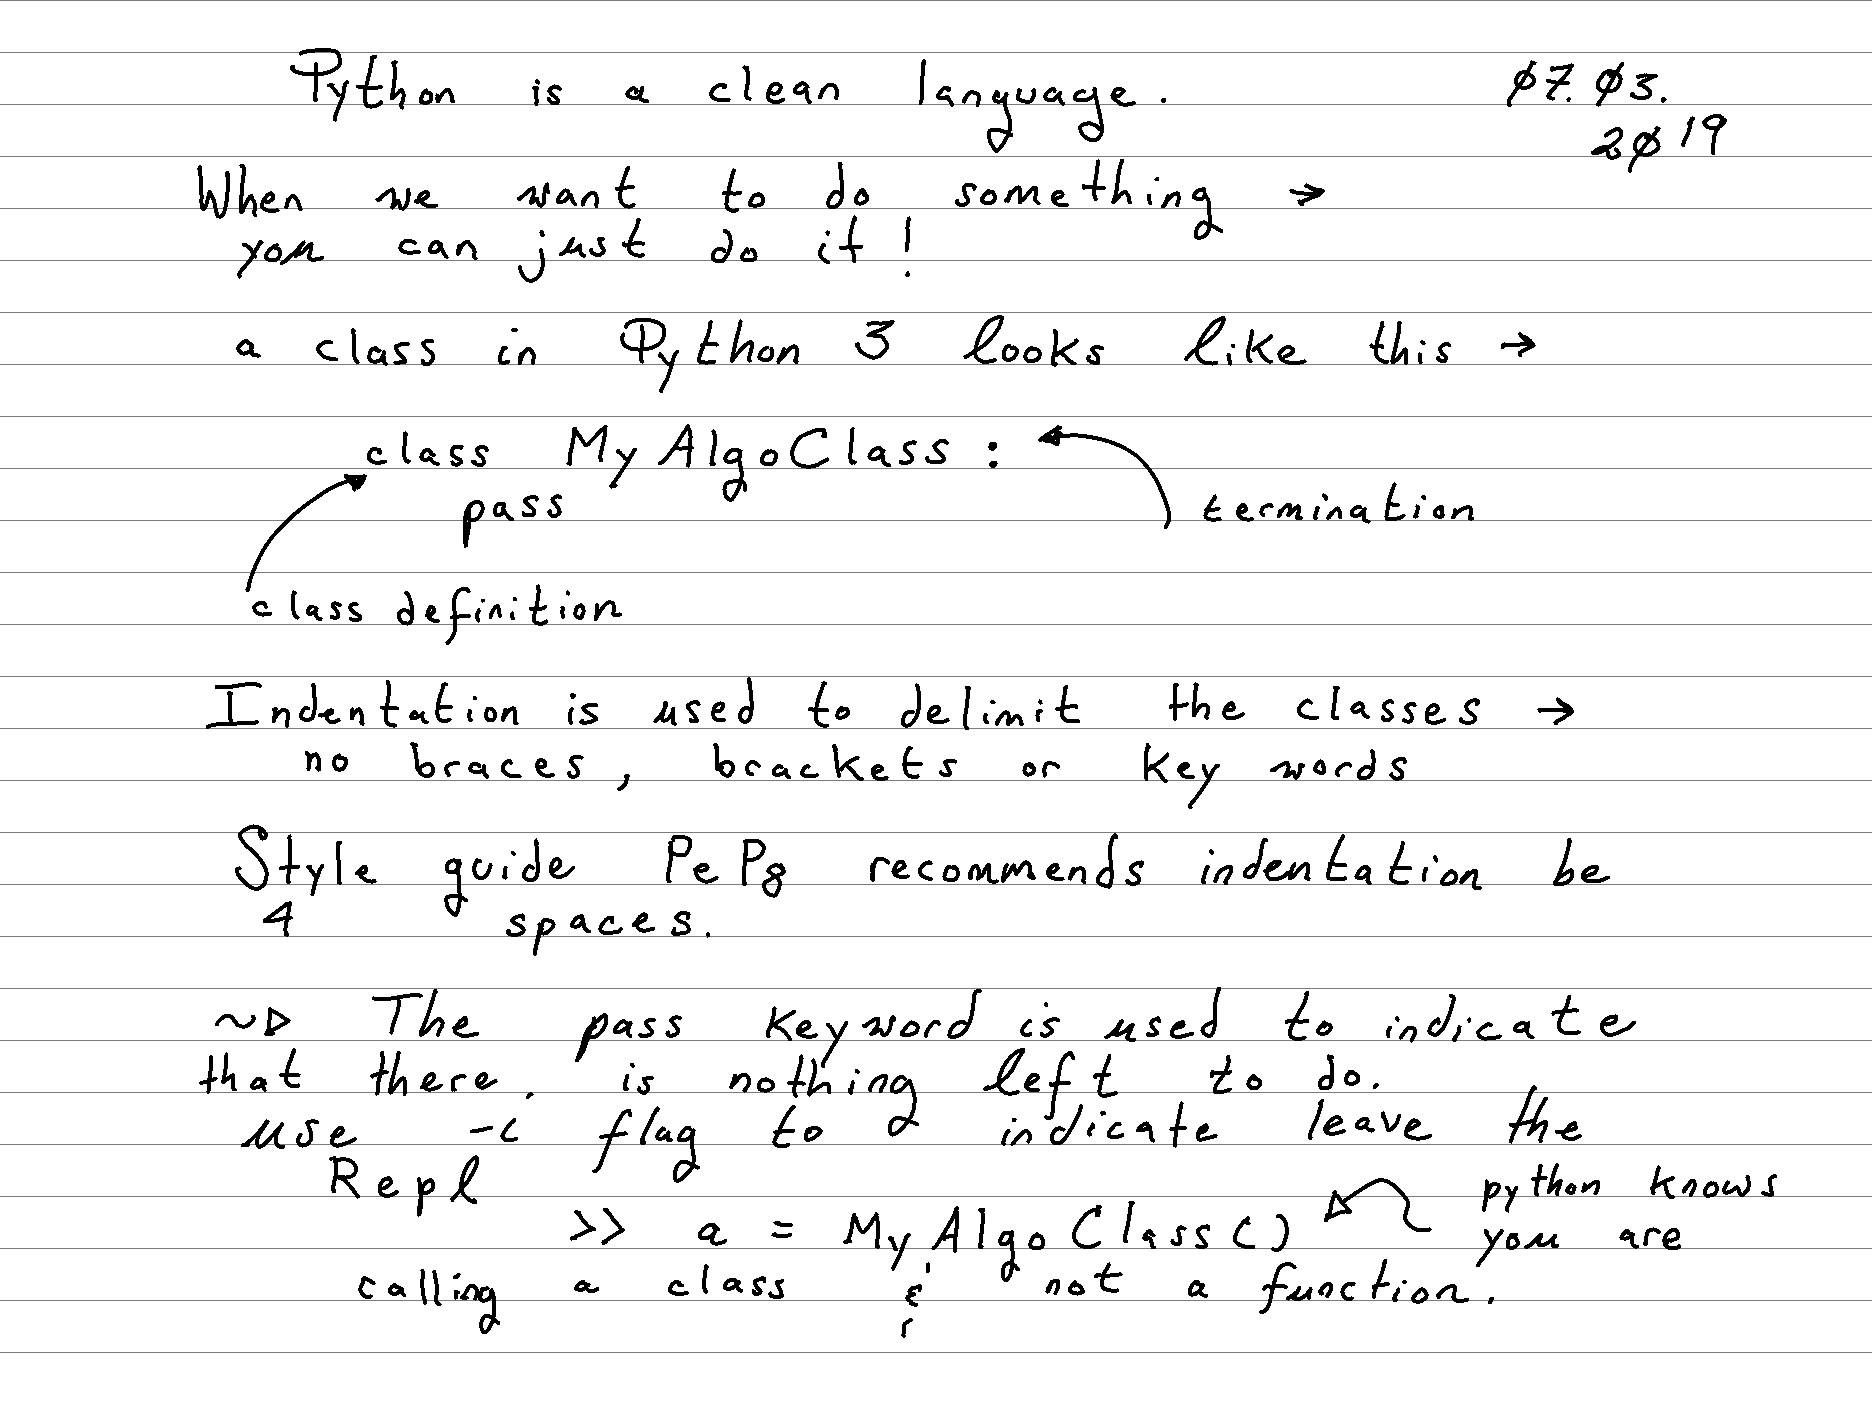 Python is a clean language.
07.03.
2019
When we want to do something →
you can just do it!
a class in Python 3 looks like this →
class MyAlgoClass:
pass
termination
class definition
Indentation is used to delimit the classes →
no braces, brackets or key words
Style guide PeP8 recommends indentation be
4 spaces.
~▷ The pass keyword is used to indicate
that there. is nothing left to do.
use -i flag to indicate leave the
Repl
python knows
>> a = MyAlgoClass()
you are
calling a class & not a function.